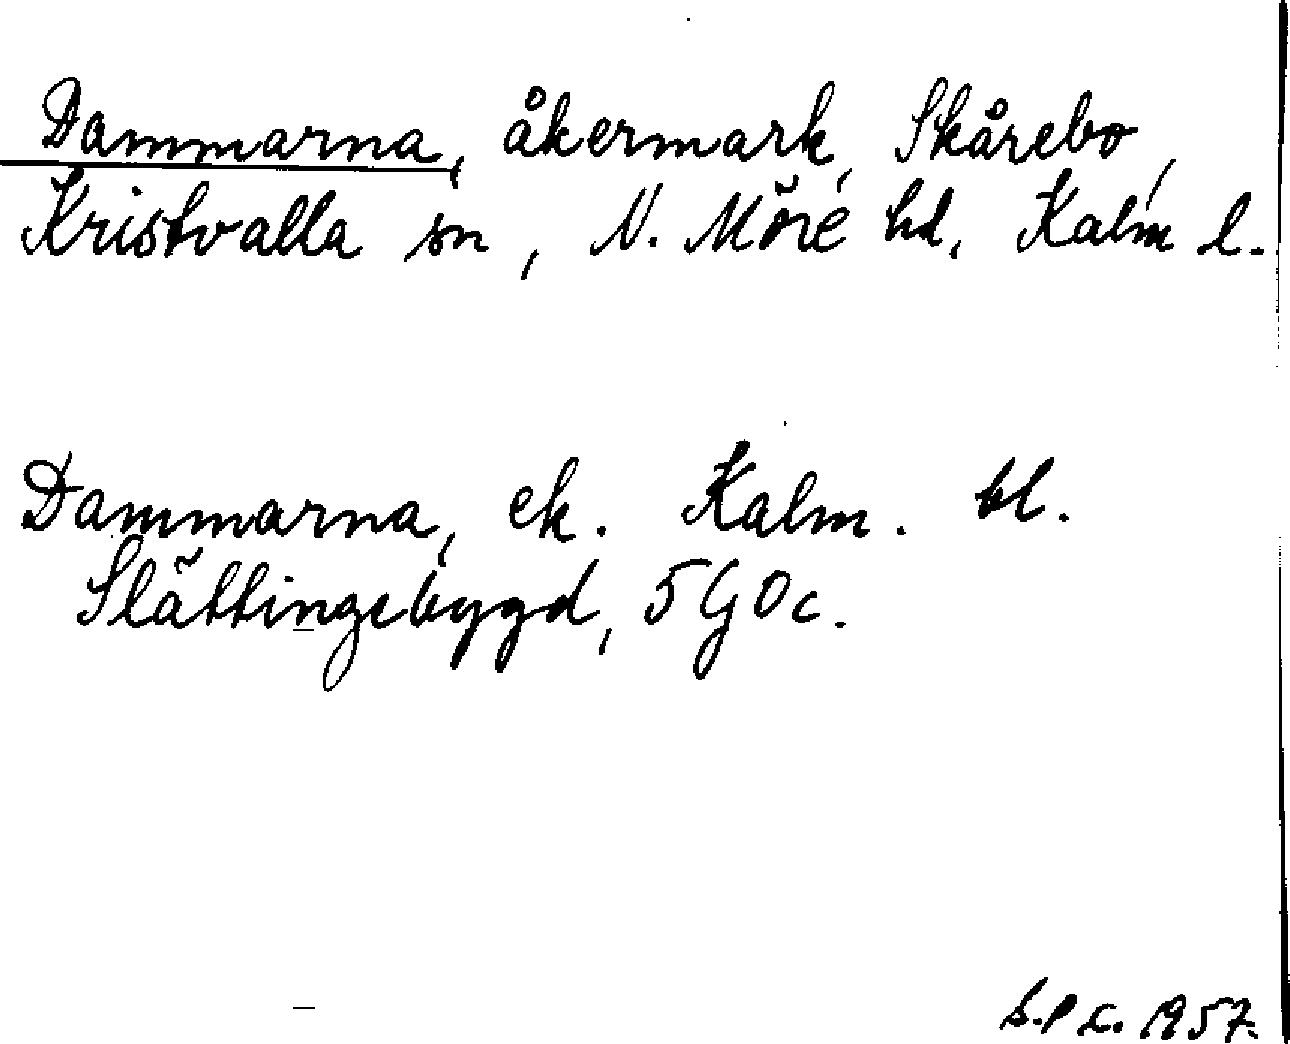 Dammarna, åkermark, Skårebo,
Kristvalla sn, N. Möre hd, Kalm l.
Dammarna, ek. Kalm. bl.
Slättingebygd, 5 G 0 c.
S.P.C. 1957.